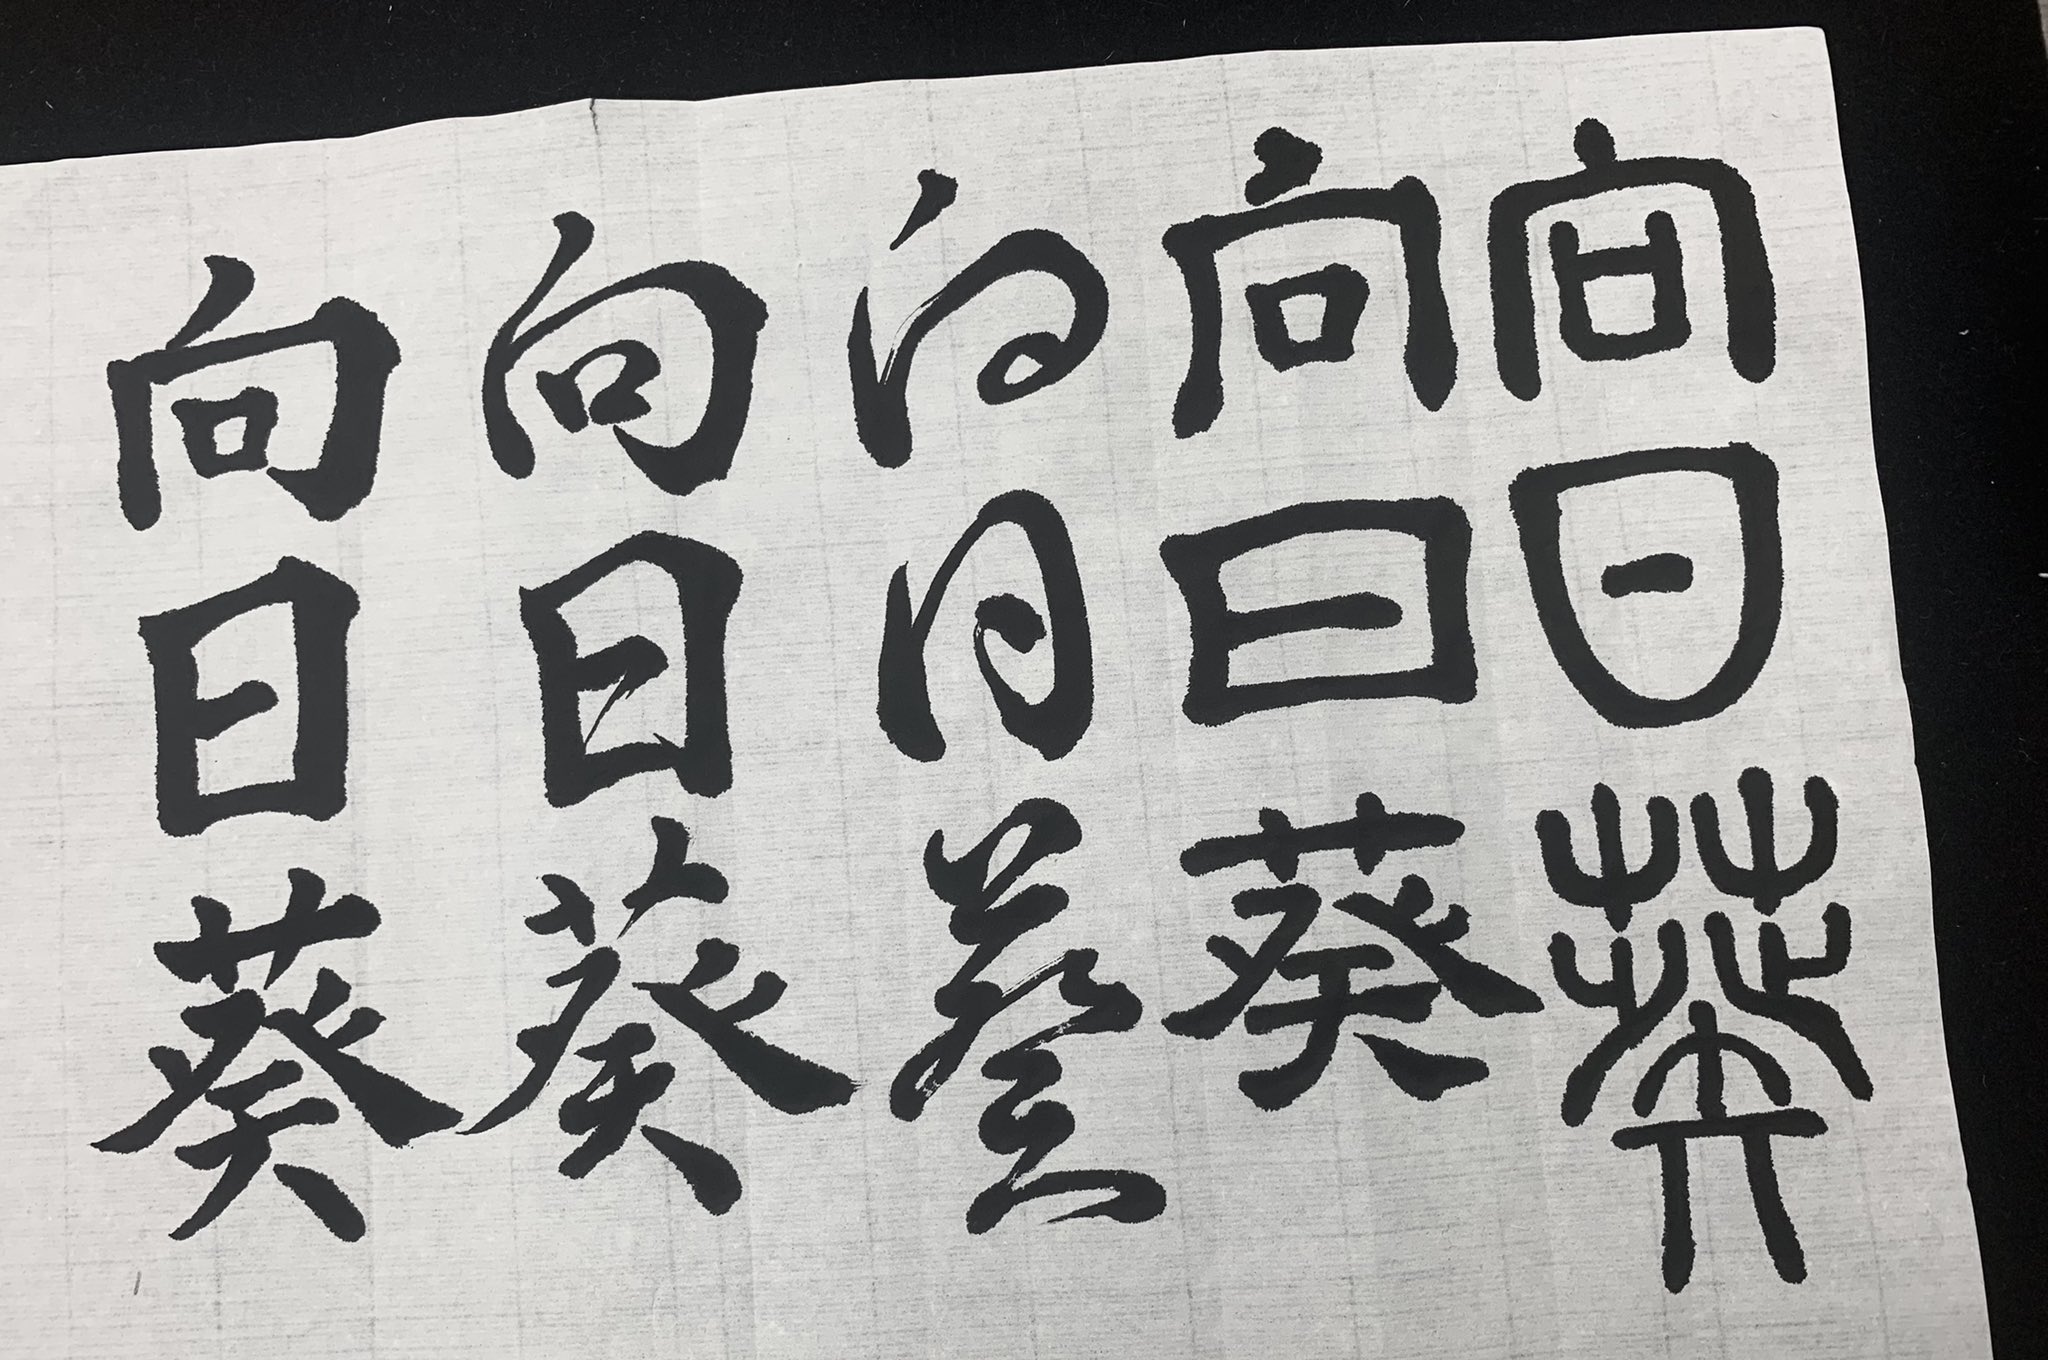 向日葵
向日葵
向日葵
向日葵
向日葵